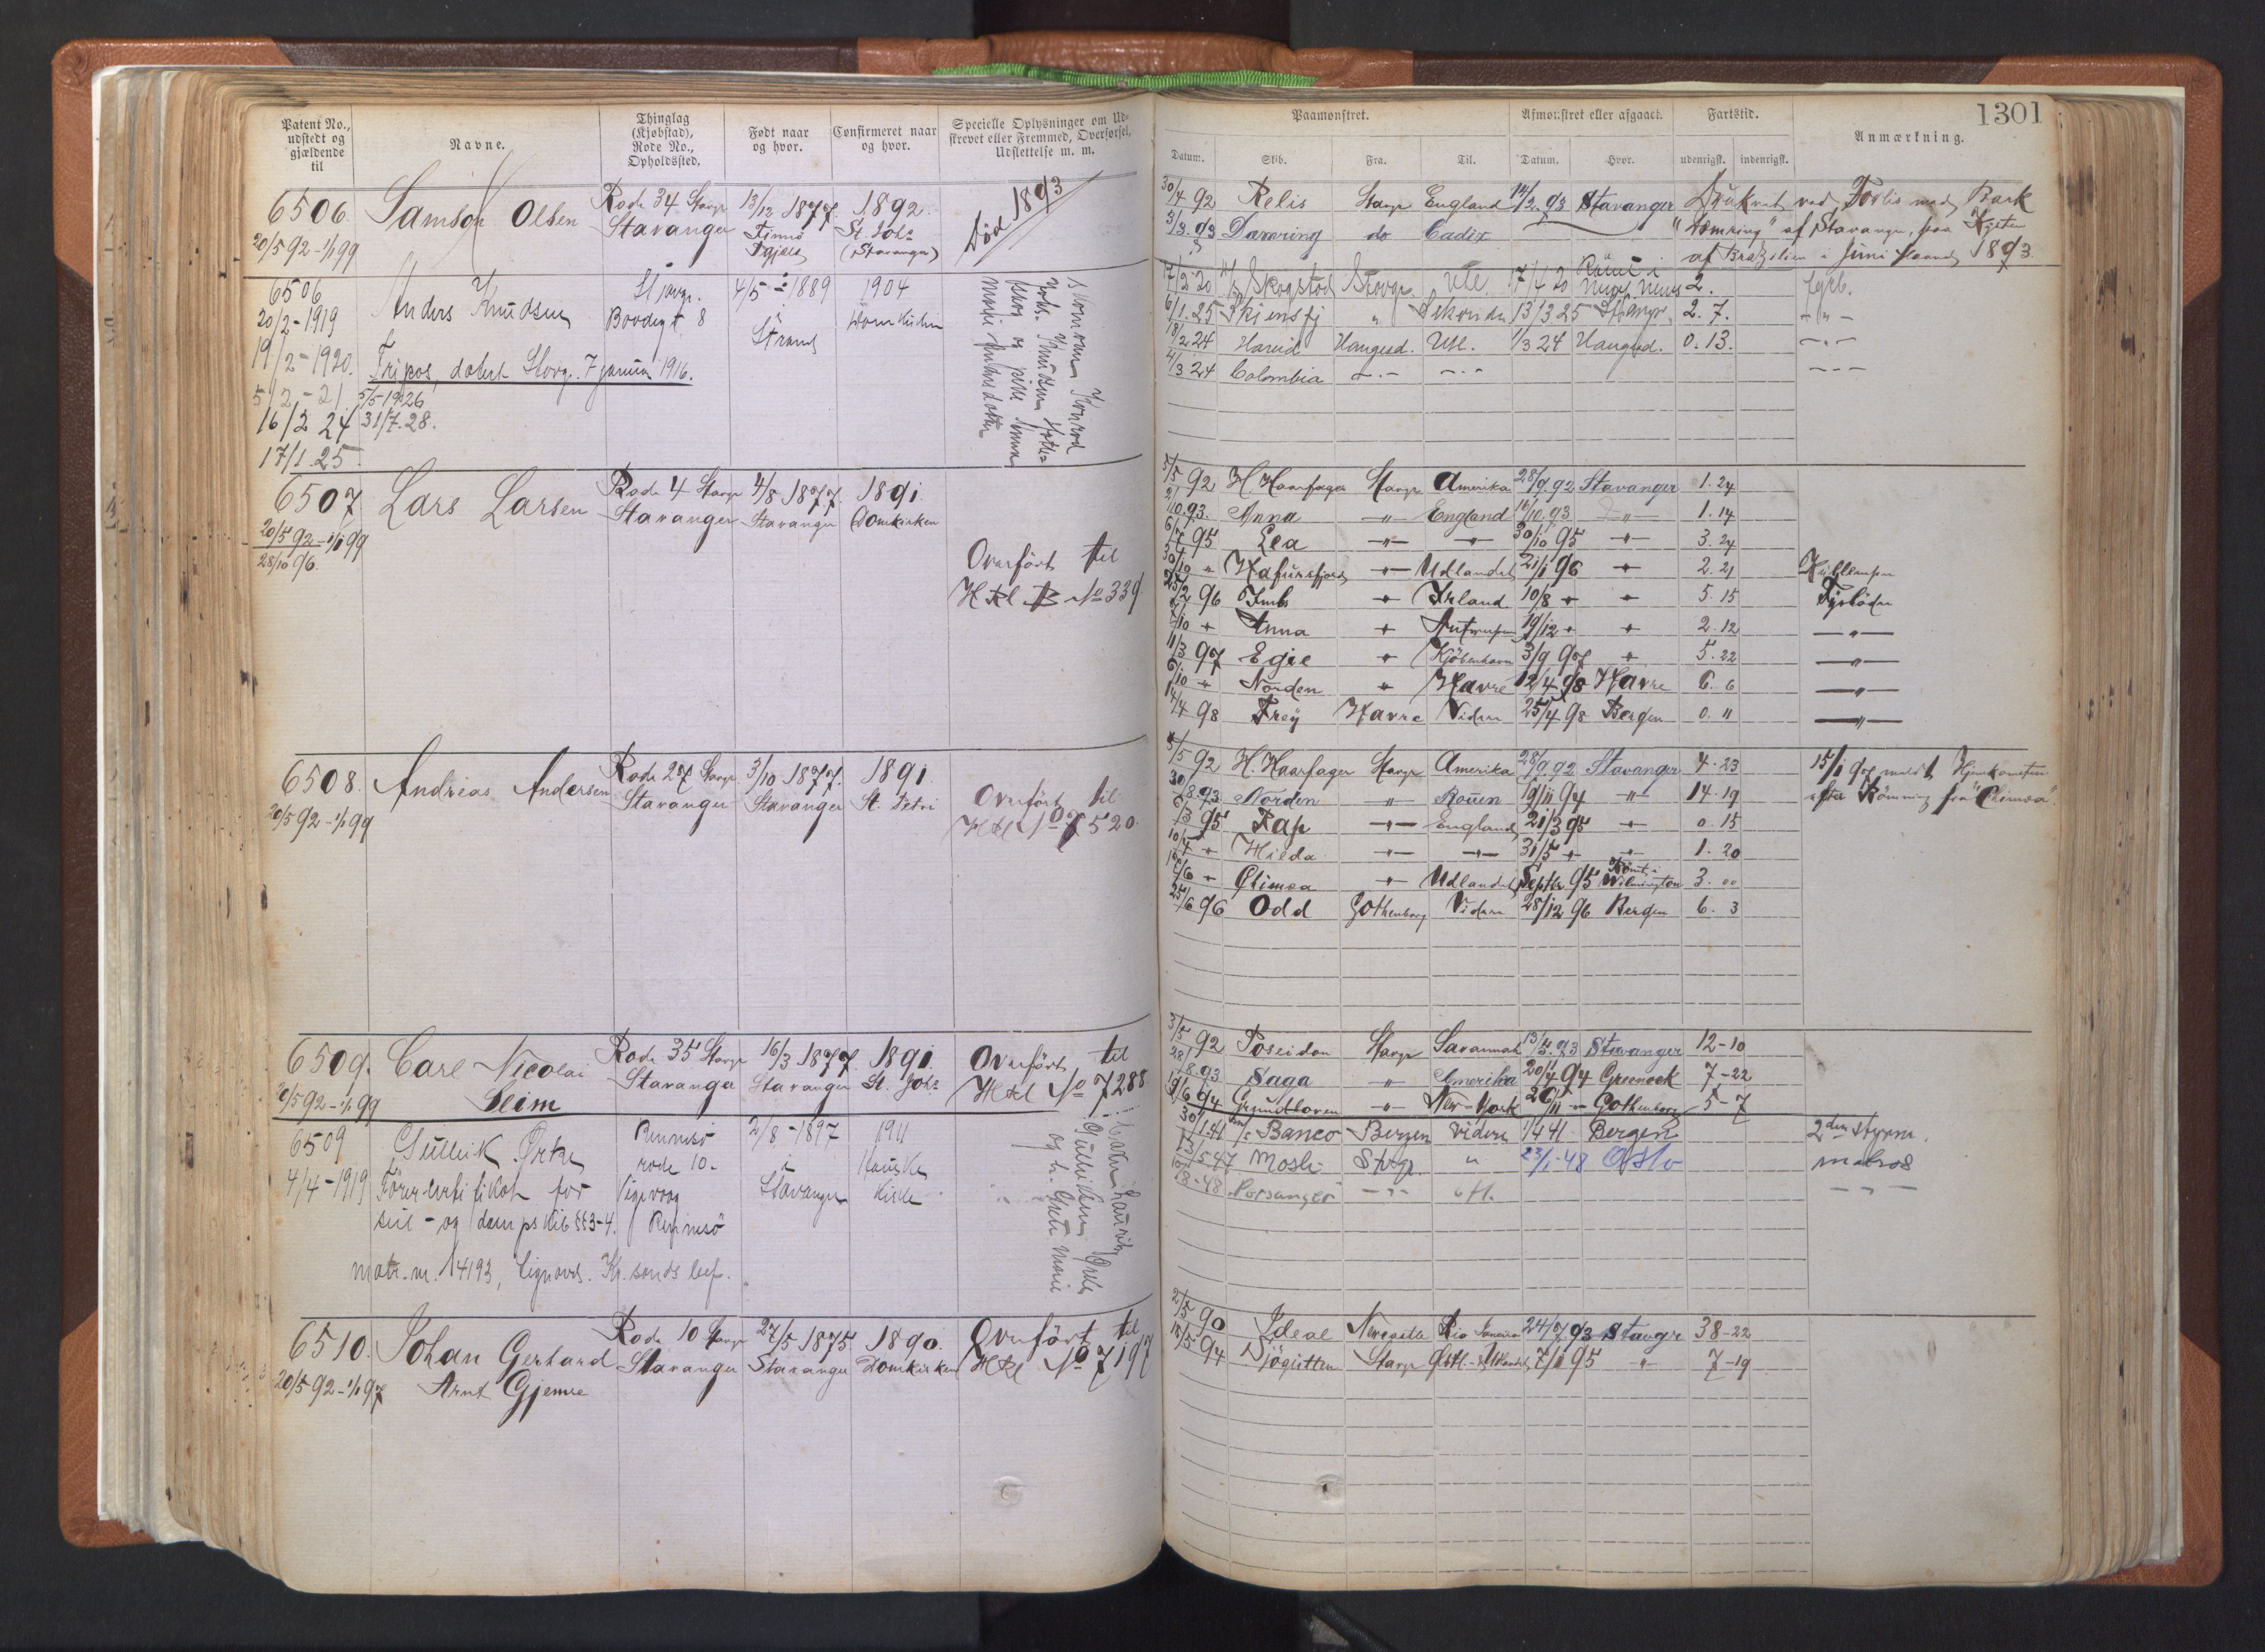 1301
Patent No., udstedt og gjældende til
Navne.
Thinglag (Kjøbstad), Rode No., Opholdssted.
Født naar og hvor.
Confirmeret naar og hvor.
Specielle Oplysninger om Udskrevet eller Fremmed, Overførsel, Udslettelse m. m.
Paamønstret.
Afmønstret eller afgaaet.
Fartstid.
Anmærkning.
Datum. Skib. Fra. Til. Datum. Hvor. udenrigsk. indenrigsk.
6506. Samson Olsen Rode 34 Stavgr 13/12 1877. 1892. Død 1893
20/5 92 - 1/1 99 Stavanger Finnö St. Johs
(Stavanger)
30/4 92 Relis Stavgr England 14/2. 93 Stavanger Druknet ved Forlis med Bark
3/3. 93 Dæmring do Cadix "Dæmring" af Stavanger, paa Kysten
af Brazilien i Juni Maaned 1893.
6506 Anders Knudsen Stavgr. 4/5 - 1889 1904
20/2 - 1919 8 i Domkirken
19/2 - 1920. Strand
Fripas, datert Stavg. 7 januar 1916.
5/2 - 21 5/5 1926
16/2 24 31/7. 28.
17/1 25
Skogstad Stavgr. Utl. 17/4 20 Rømt i 2.
6/1. 25 Skiensfj " 13/3 25 Stavgr. 2. 7. - " -
18/2 24 Hareid Haugesd. Utl. 1/3 24 Haugesd. 0. 13. - " -
4/3 24 Colombia - " - - " - - " -
6507 Lars Larsen Rode 4 Stavgr 4/8 1877. 1891.
20/5 92 - 1/1 99 Stavanger Stavanger Domkirken
28/10 96.
Overført til
H Rl B No 339
5/5 92 H. Haarfager Stavgr Amerika 28/9. 92 Stavanger 1. 24
93. Anna " England 16/10. 93 " 1. 14
6/7 95 Lea " " 30/10 95 " 3. 24
30/10 " Hafursfjord " Udlandet 21/1 96 " 2. 21
25/2 96 " Irland 10/8 " " 5. 15 Fyrbøder
/10 " Anna " Antwerpen 19/12 " " 2. 12 "
11/3 97 Egie " Kjöbenhavn 3/9 97 " 5. 22 "
6/10 " Norden " Havre 12/4 98 Havre 6. 6 "
14/4 98 Frey Havre Videre 25/4 98 Bergen 0. 11 "
6508. Andreas Andersen Rode 27 Stavgr 3/10 1877. 1891.
20/5 92 - 1/1 99 Stavanger Stavanger St. Petri
Overført til
HRl No 7520.
5/5 92 H. Haarfager Stavgr Amerika 28/9. 92 Stavanger 4 - 23 15/1 97 meldt Hjemkomsten
30/8 93 Norden " Rouen 19/11 94 " 14 - 19 efter Rømning fra "Chimæa".
6/3 95 Kap " England 21/3 95 " 0. 15
10/4 " Hilda " " 31/5 " " 1. 20
/6 " Chimæa " Udlandet Septbr 95 Rømt i Wilmington 3. 00
25/6 96 Odd Gothenborg Videre 28/12 96 Bergen 6. 3
6509. Carl Nicolai Rode 35 Stavgr 16/3 1877. 1891. Overført til
20/5 92 - 1/1 99 Seim Stavanger Stavanger St. Johs HRl No 7288.
3/5 92 Poseidon Stavgr Savannah 13/5. 93 Stavanger 12 - 10
28/8. 93 Saga " Amerika 20/4 94 Greenock 7 - 22
19/6 94 Grundloven " New-York 26/11 " Gothenborg 5 - 7
6509 Gullik Ørke Rennesö 2/8 - 1897 1911
4/4 - 1919 Förercertifikat for rode 10. i
seil - og dampskib §§ 3-4. Rennesö Stavanger Kirke
matr. nr. 14193, Kr. sands
30/1 41 Banco Bergen videre 1/4 41 Bergen 2den styrm.
13/5 - 47 Mosli Stvgr. " 23/1 - 48 Oslo matros
- 48 Porsanger - " - - " -
6510. Johan Gerhard Rode 10 Stavgr 27/5 1875. 1890. Overført til
20/5 92 - 1/1 97 Arnt Gjemre Stavanger Stavanger Domkirken HRl No 7197
2/5 90 Ideal Newcastle Rio Janeiro 24/7 93 Stavgr 38 - 22
18/5 94 Sjögutten Stavgr 7/1 95 " 7 - 19